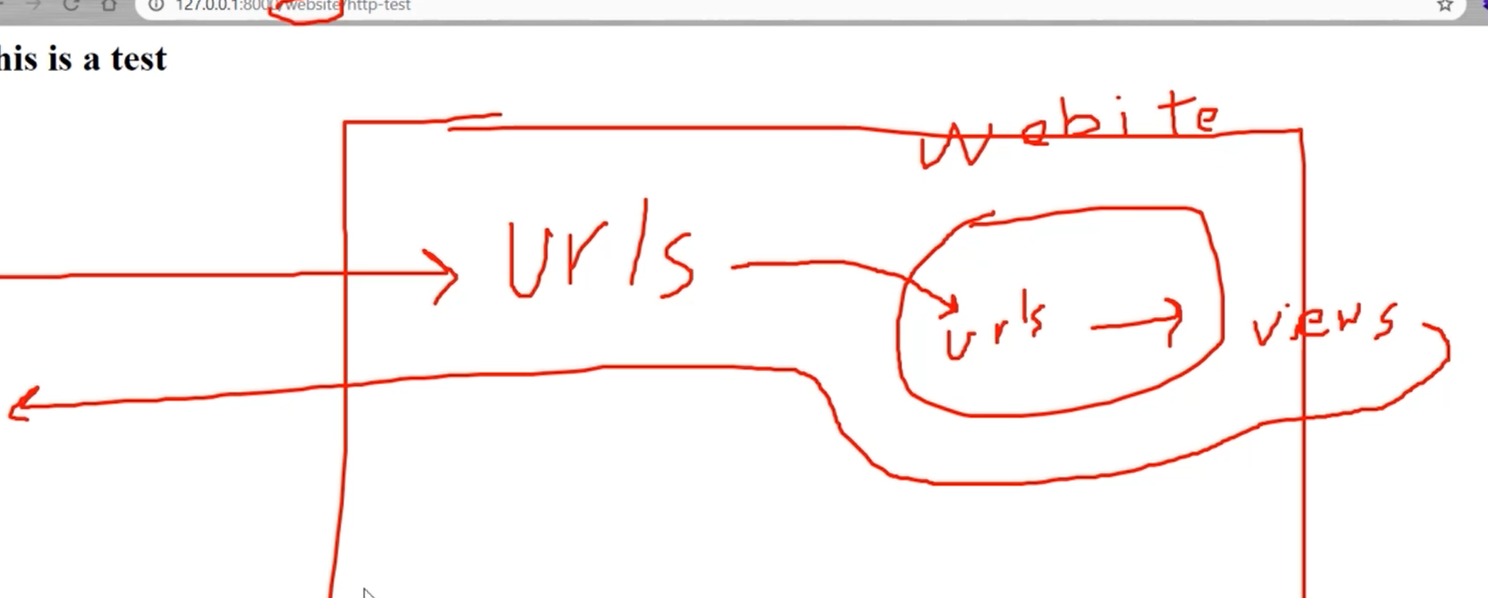 127.0.0.1:8000/website/http-test
his is a test
Webite
urls
urls
views